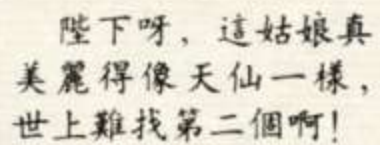 陛下呀，這姑娘真
美麗得像天仙一樣，
世上難找第二個啊！